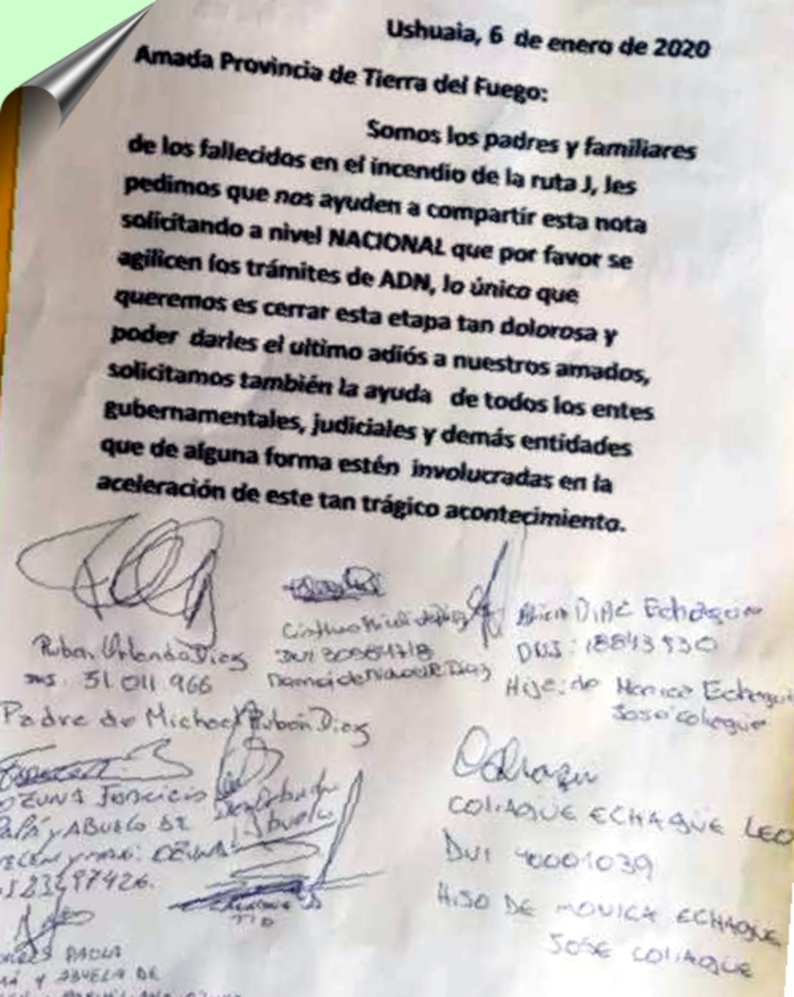 Ushuaia, 6 de enero de 2020
Amada Provincia de Tierra del Fuego:
Somos los padres y familiares
de los fallecidos en el incendio de la ruta J, les
pedimos que nos ayuden a compartir esta nota
solicitando a nivel NACIONAL que por favor se
agilicen los trámites de ADN, lo único que
queremos es cerrar esta etapa tan dolorosa y
poder darles el ultimo adiós a nuestros amados,
solicitamos también la ayuda de todos los entes
gubernamentales, judiciales y demás entidades
que de alguna forma estén involucradas en la
aceleración de este tan trágico acontecimiento.
Diaz Echague
Ruben Orlando Diaz
31 011 966
Hijo: de Monica Echague
Jose Coliague
Padre de Michael Ruben Diaz
COLIAQUE ECHAGUE LEO
OZUNA
Papá y ABUELO DE
DNI 40001039
HIJO DE MONICA ECHAGUE
JOSE COLIAQUE
PAOLA
Y ABUELA DE